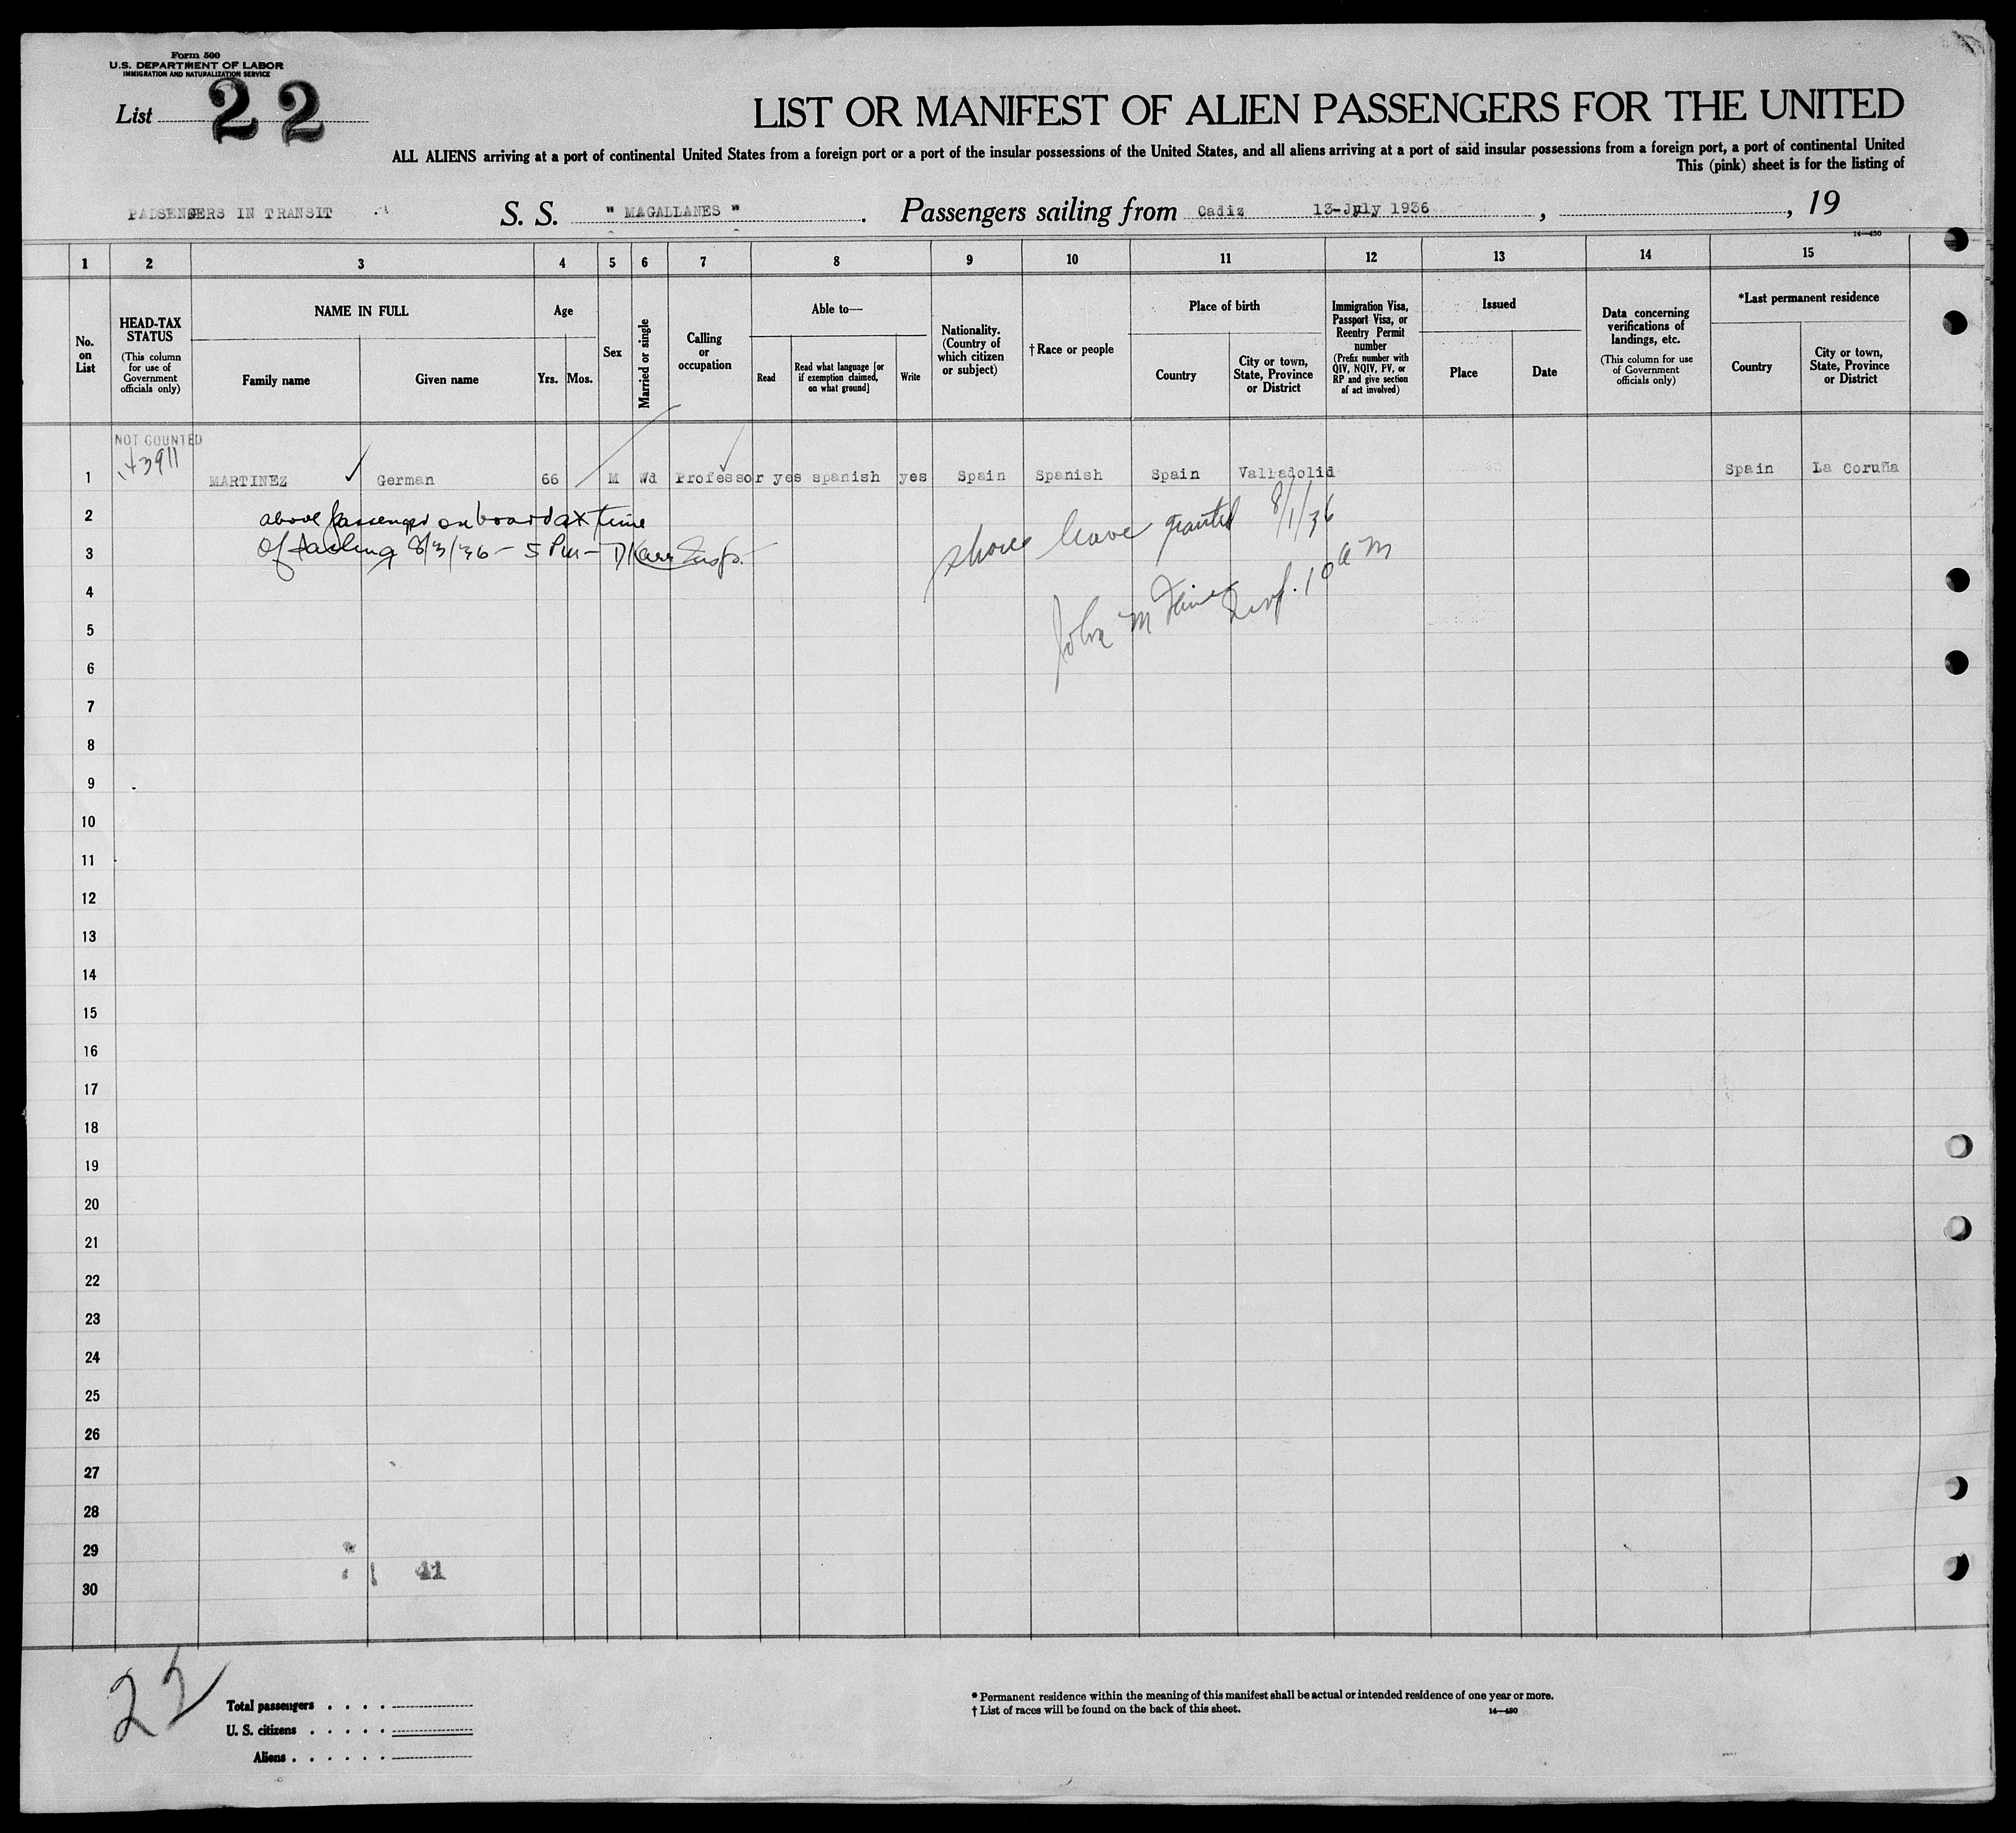 Form 500
U.S. DEPARTMENT OF LABOR
IMMIGRATION AND NATURALIZATION SERVICE
List 22
LIST OR MANIFEST OF ALIEN PASSENGERS FOR THE UNITED
ALL ALIENS arriving at a port of continental United States from a foreign port or a port of the insular possessions of the United States, and all aliens arriving at a port of said insular possessions from a foreign port, a port of continental United
This (pink) sheet is for the listing of
PADSENGERS IN TRANSIT S. S. " MAGALLANES " . Passengers sailing from Cadiz 13-July 1936 , , 19
14—430
1 2 3 4 5 6 7 8 9 10 11 12 13 14 15
No. on List
HEAD-TAX STATUS (This column for use of Government officials only)
NAME IN FULL
Family name Given name
Age
Yrs. Mos.
Sex
Married or single
Calling or occupation
Able to—
Read
Read what language [or if exemption claimed, on what ground]
Write
Nationality. (Country of which citizen or subject)
† Race or people
Place of birth
Country
City or town, State, Province or District
Immigration Visa, Passport Visa, or Reentry Permit number (Prefix number with QIV, NQIV, PV, or RP and give section of act involved)
Issued
Place Date
Data concerning verifications of landings, etc. (This column for use of Government officials only)
*Last permanent residence
Country
City or town, State, Province or District
NOT COUNTED
3911
1 MARTINEZ German 66 M Wd Professor yes spanish yes Spain Spanish Spain Valladolid Spain La Coruña
2 above passenger on board at time
shore leave granted 8/1/36
3 of sailing 8/3/36 - 5 PM - Insp.
4 John M Insp. 10 am
5
6
7
8
9
10
11
12
13
14
15
16
17
18
19
20
21
22
23
24
25
26
27
28
29
41
30
22
Total passengers . . . .
U. S. citizens . . . . .
Aliens . . . . . .
* Permanent residence within the meaning of this manifest shall be actual or intended residence of one year or more.
† List of races will be found on the back of this sheet. 14—430